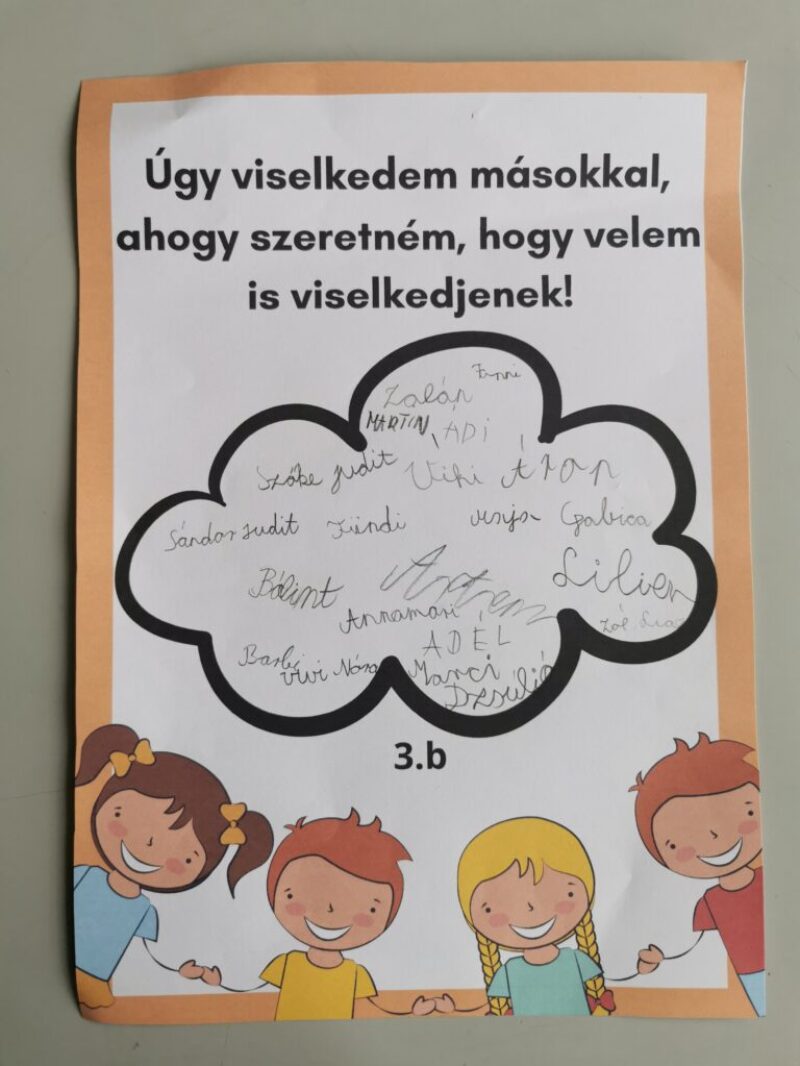 Úgy viselkedem másokkal,
ahogy szeretném, hogy velem
is viselkedjenek!
Fanni
Zalán
MARTIN ÁDI
Szőke Judit Viki Áron
Sándor Judit Tündi Gabica
Bálint Lilien
Annamari
ADÉL
Barbi Vivi Nóra Marci
Dzsúlió
3.b